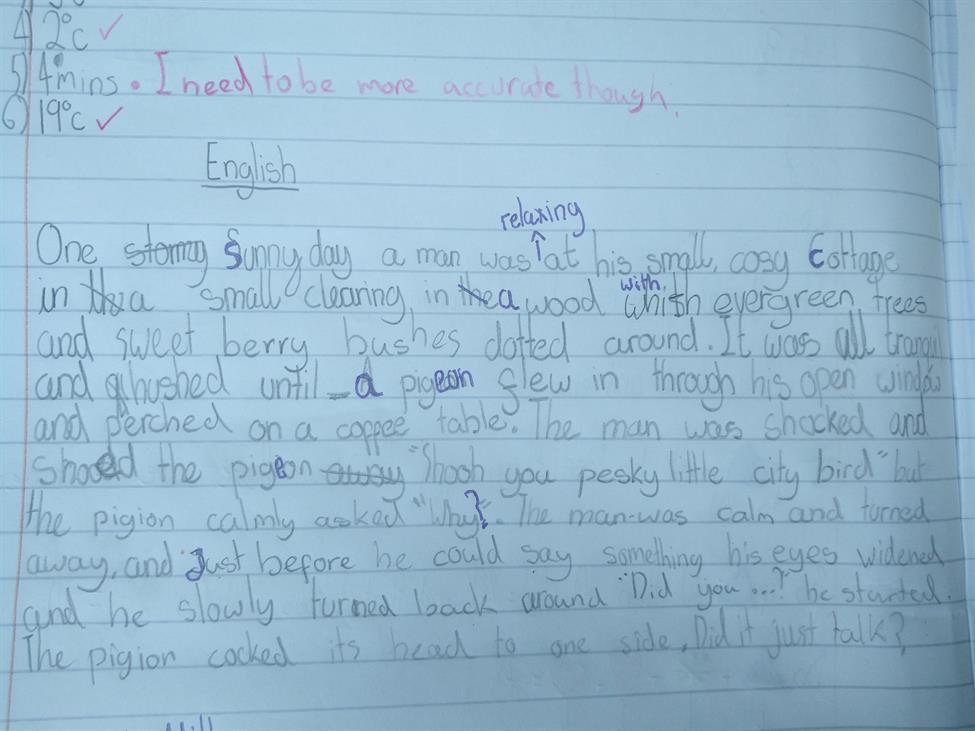 4) 2°c ✓
5) 4mins. I need to be more accurate though.
6) 19°c ✓
English
relaxing
One stormy Sunny day a man was ^ at his small, cosy Cottage
with
in the a small clearing, in the a wood whith evergreen trees
and sweet berry bushes dotted around. It was all tranquil
and hushed until a pigeon flew in through his open window
and perched on a coffee table. The man was shocked and
shooed the pigeon away "Shooh you pesky little city bird" but
the pigion calmly asked "Why?". The man was calm and turned
away, and Just before he could say something his eyes widened
and he slowly turned back around "Did you...?" he started.
The pigion cocked its head to one side, Did it just talk?